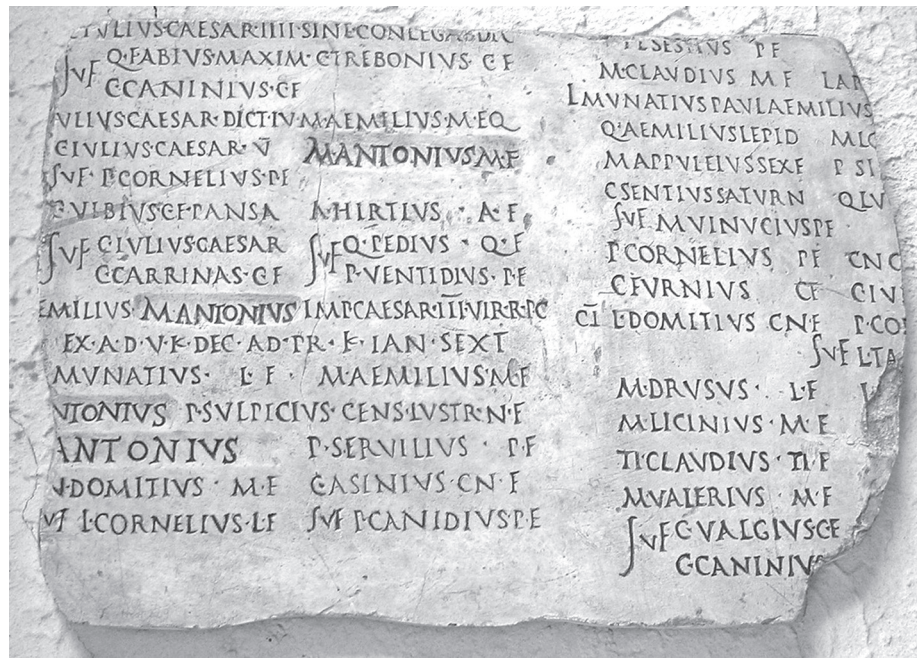 IVLIVS·CAESAR·IIII·SINE·CONLEGA
SVF Q·FABIVS·MAXIM· C·TREBONIVS· C F
C·CANINIVS·C·F
VLIVS·CAESAR· DICT·IV M·AEMILIVS·M·EQ
C·IVLIVS·CAESAR· V̄ M·ANTONIVS·M·F
SVF· P·CORNELIVS·P·F
C·VIBIVS·C·F·PANSA A·HIRTIVS · A·F
SVF C·IVLIVS·CAESAR SVF Q·PEDIVS · Q·F
C·CARRINAS·C·F P·VENTIDIVS· P·F
EMILIVS· M·ANTONIVS IMP·CAESAR·III·VIR·R·P·C
EX·A·D·V·K·DEC·AD·PR·K·IAN·SEXT
MVNATIVS· L·F · M·AEMILIVS·M·F
NTONIVS P·SVLPICIVS·CENS·LVSTR·N·F
ANTONIVS P·SERVILIVS · P·F
N·DOMITIVS · M·F C·ASINIVS·CN·F
VF L·CORNELIVS·L·F SVF P·CANIDIVS·P·F
L·SESTIVS P F
M·CLAVDIVS M F
L MVNATIVS PAVL AEMILIVS
Q·AEMILIVS LEPID M LO
M·APPVLEIVS SEX F P SI
C SENTIVS SATVRN Q LV
SVF M VINVCIVS P F
P CORNELIVS P F CN C
C·FVRNIVS C F C IV
CĪ L·DOMITIVS CN·F P·CO
SVF L·TA
M·DRVSVS · L·F
M·LICINIVS · M·F
TI·CLAVDIVS · TI·F
M·VALERIVS · M·F
SVF C·VALGIVS C F
C·CANINIV